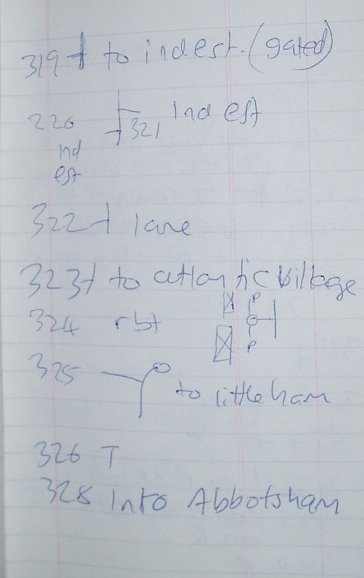 319 to ind est. (gated)
220 321 Ind est
ind
est
322 lane
323 to atlantic village
324 rbt P
P
325 to littleham
326 T
328 Into Abbotsham